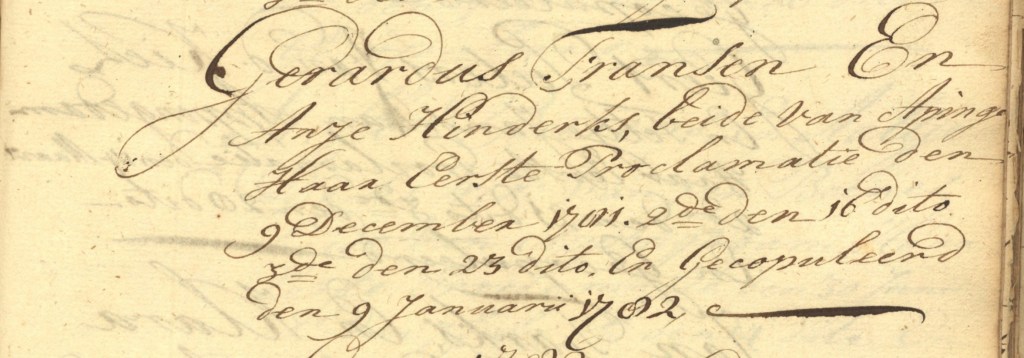 Gerardus Fransen En
Anje Hinderks, beide van Apinge
Haar Eerste Proclamatie den
9 December 1781. 2de den 16 dito
3de den 23 dito. En Gecopuleerd
den 9 Januarii 1782